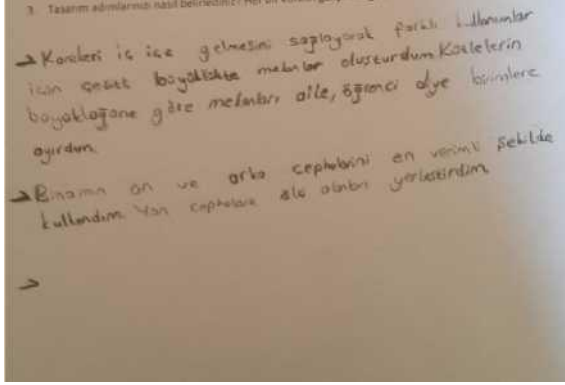 3. Tasarım adımlarınızı nasıl belirlediniz?
→ Kareleri iç içe gelmesini sağlayarak farklı kullanımlar
için çeşit büyüklükte mekanlar oluşturdum Kütlelerin
büyüklüğüne göre mekanları aile, öğrenci diye birimlere
ayırdım.
→ Binanın ön ve arka cephelerini en verimli şekilde
kullandım. Yan cephelere ıslak alanları yerleştirdim
→